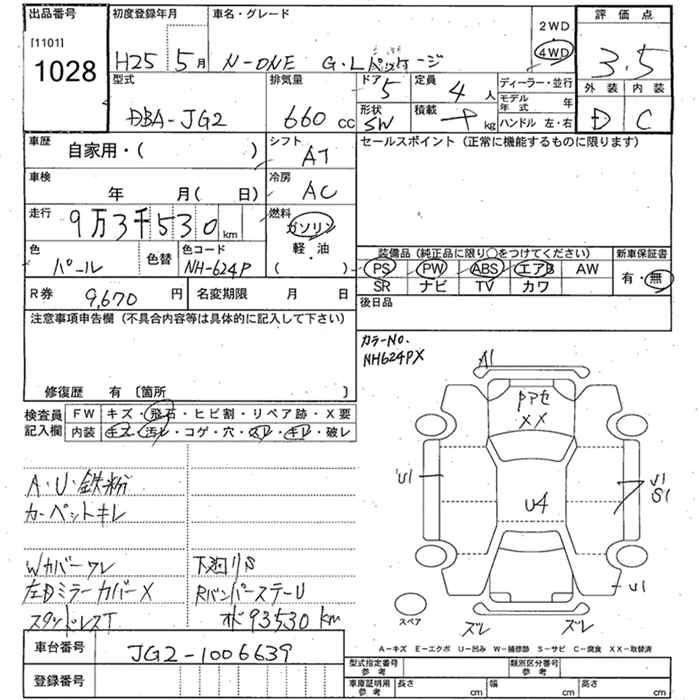 出品番号
[1101]
1028
初度登録年月
H25 5月
車名・グレード
N-ONE G・Lパッケージ
2WD
4WD
評価点
3.5
外装 内装
D C
型式
DBA-JG2
排気量
660 cc
ドア 5
定員 4 人
形状 SW
積載 kg
ディーラー・並行
モデル年式 年
ハンドル 左・右
車歴
自家用・( )
シフト AT
セールスポイント (正常に機能するものに限ります)
車検
年 月( 日)
冷房 AC
走行
9万3千530km
燃料
ガソリン
軽・油
( )
色
パール
色替
色コード
NH-624P
装備品 (純正品に限り○をつけてください)
新車保証書
PS PW ABS エアB AW
SR ナビ TV カワ
有・無
R券 9,670 円
名変期限 月 日
後日品
注意事項申告欄 (不具合内容等は具体的に記入して下さい)
修復歴 有 〔箇所 〕
カラーNo.
NH624PX
検査員記入欄
FW キズ・飛石・ヒビ割・リペア跡・X要
内装 キズ・汚レ・コゲ・穴・スレ・キレ・破レ
A1
ドアセ
XX
U1
U4
U1
S1
U1
ズレ ズレ
スペア
A・U・鉄粉
カーペットキレ
Wカバーワレ
下廻りS
左Dミラーカバー X
RバンパーステーU
スタッドレスT
オド93530km
A-キズ E-エクボ U-凹み W-補修跡 S-サビ C-腐食 XX-取替済
車台番号
JG2-1006639
登録番号
型式指定番号 参考
類別区分番号 参考
車庫証明用 参考
長さ cm
幅 cm
高さ cm